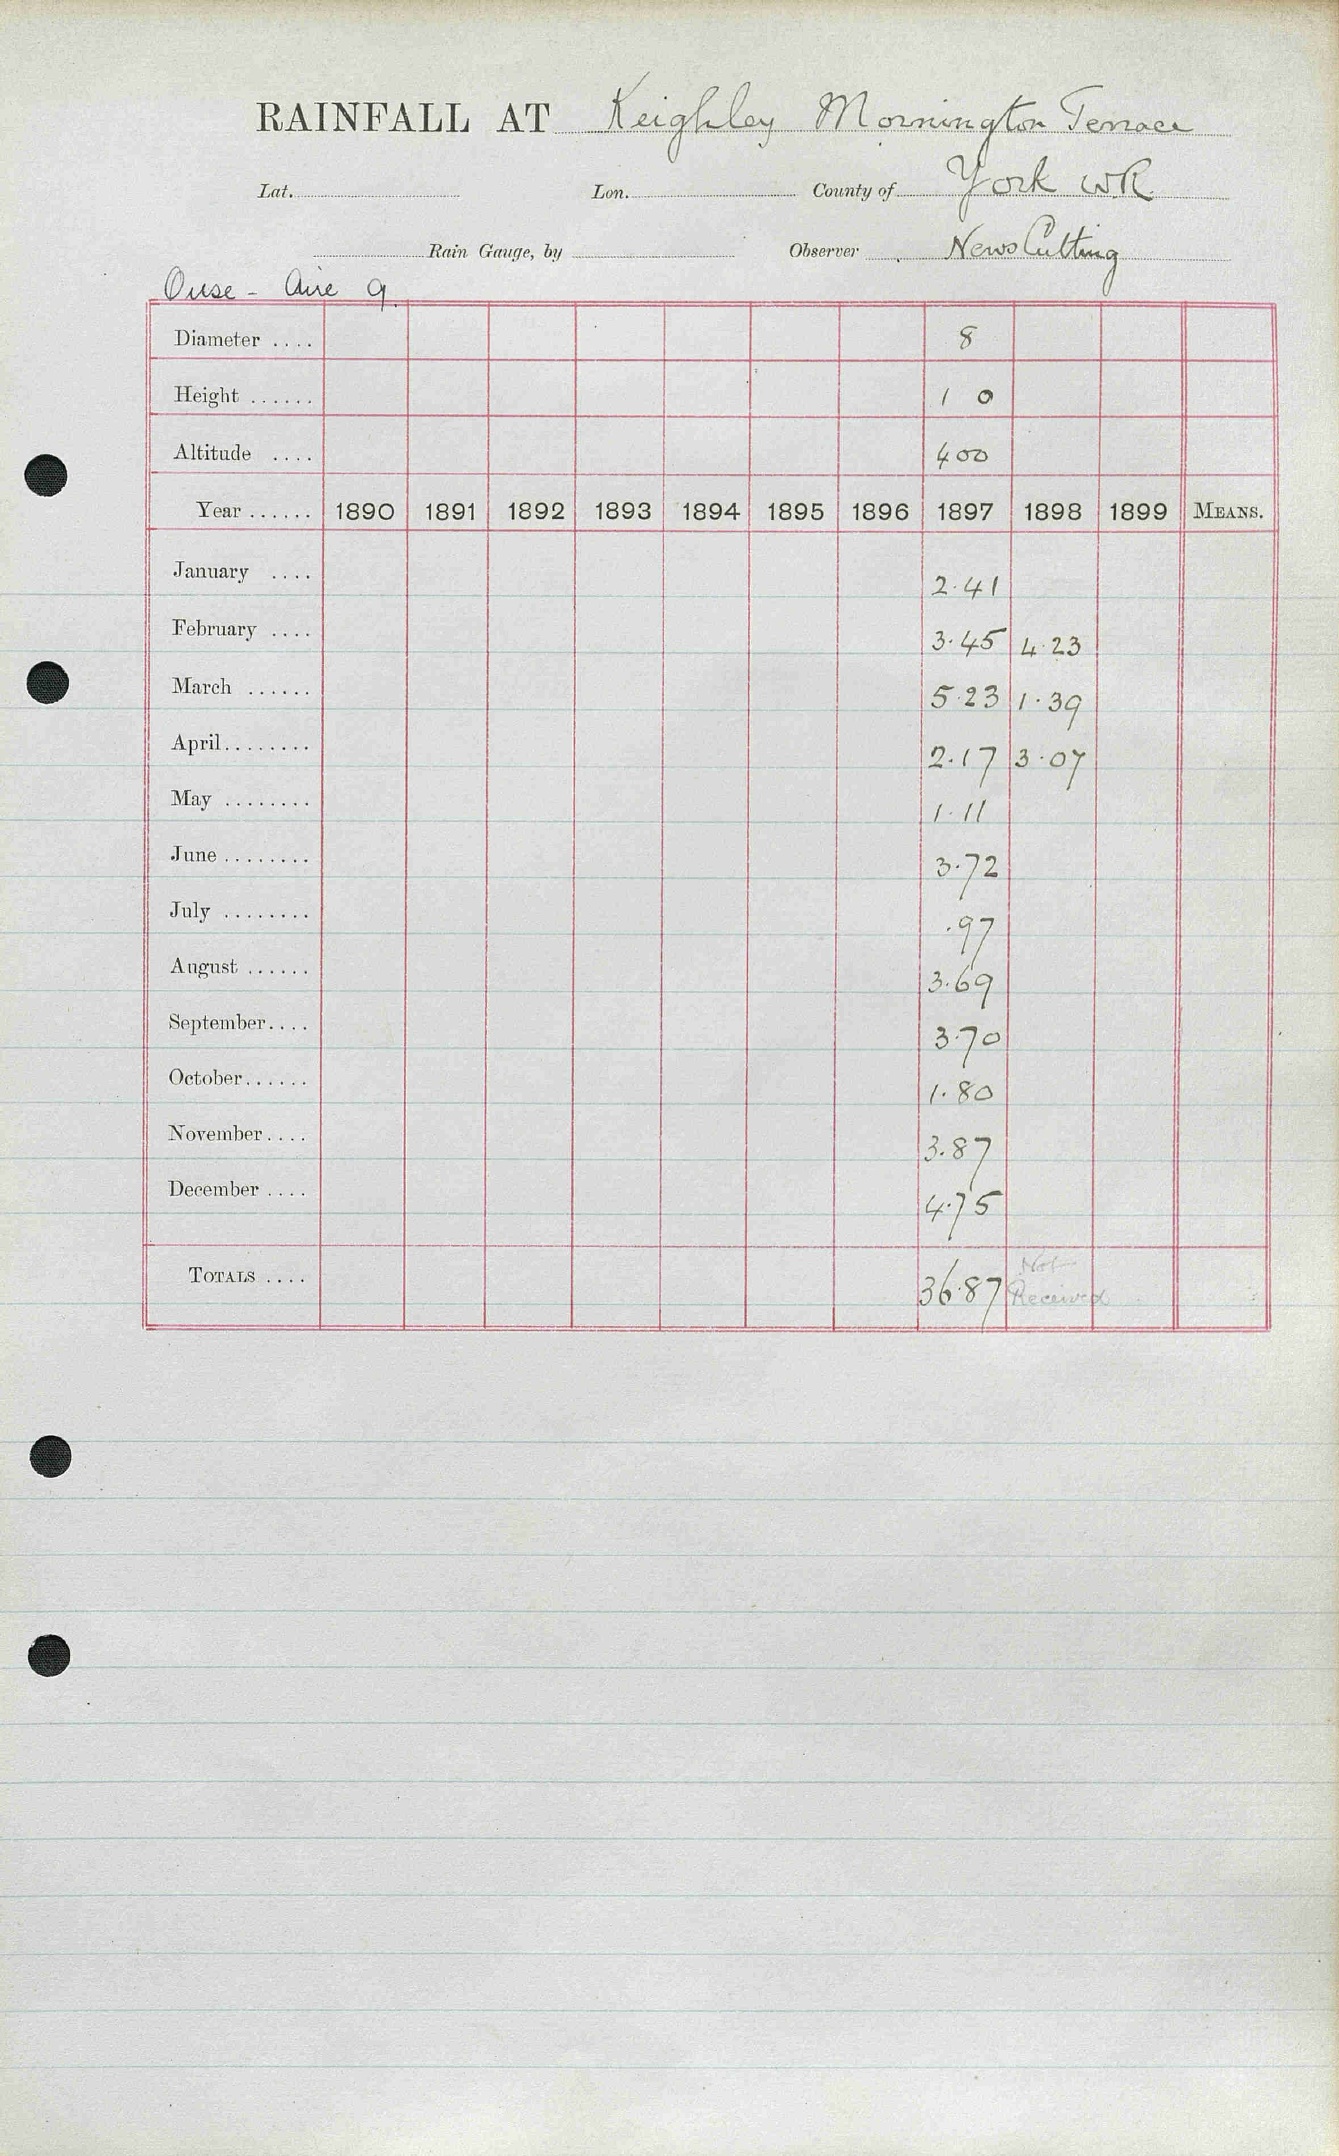 RAINFALL AT Keighley Mornington Terrace
Lat. Lon. County of York WR.
Rain Gauge, by Observer News Cutting
Ouse - Aire 9.
Diameter .... 8
Height ...... 1 0
Altitude .... 400
Year ...... 1890 1891 1892 1893 1894 1895 1896 1897 1898 1899 MEANS.
January .... 2.41
February .... 3.45 4.23
March ...... 5.23 1.39
April........ 2.17 3.07
May ........ 1.11
June ........ 3.72
July ........ .97
August ...... 3.69
September.... 3.70
October...... 1.80
November.... 3.87
December .... 4.75
TOTALS .... 36.87 Not Received